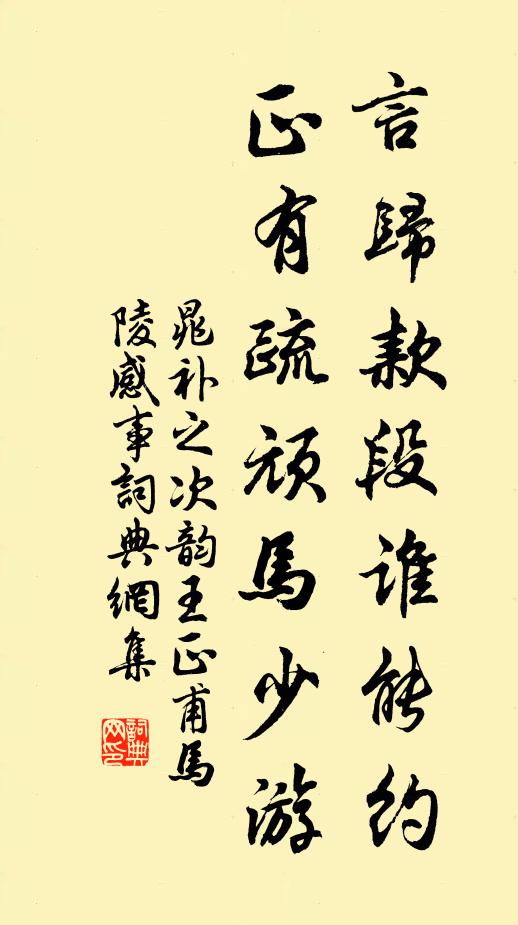 言歸款段誰能約
正有疏頑馬少游
晁补之次韵王正甫馬
陵感事詞典網集
詞典網印